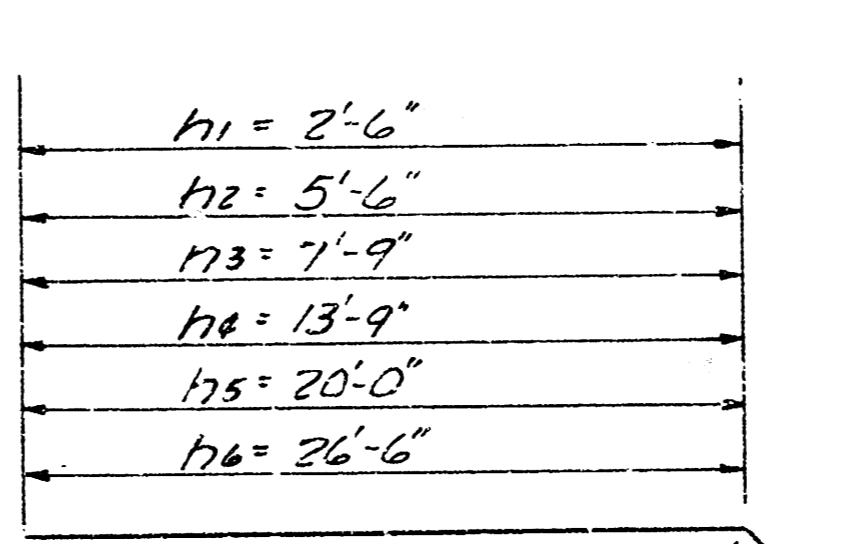 h1 = 2'-6"
h2 = 5'-6"
h3 = 7'-9"
h4 = 13'-9"
h5 = 20'-0"
h6 = 26'-6"